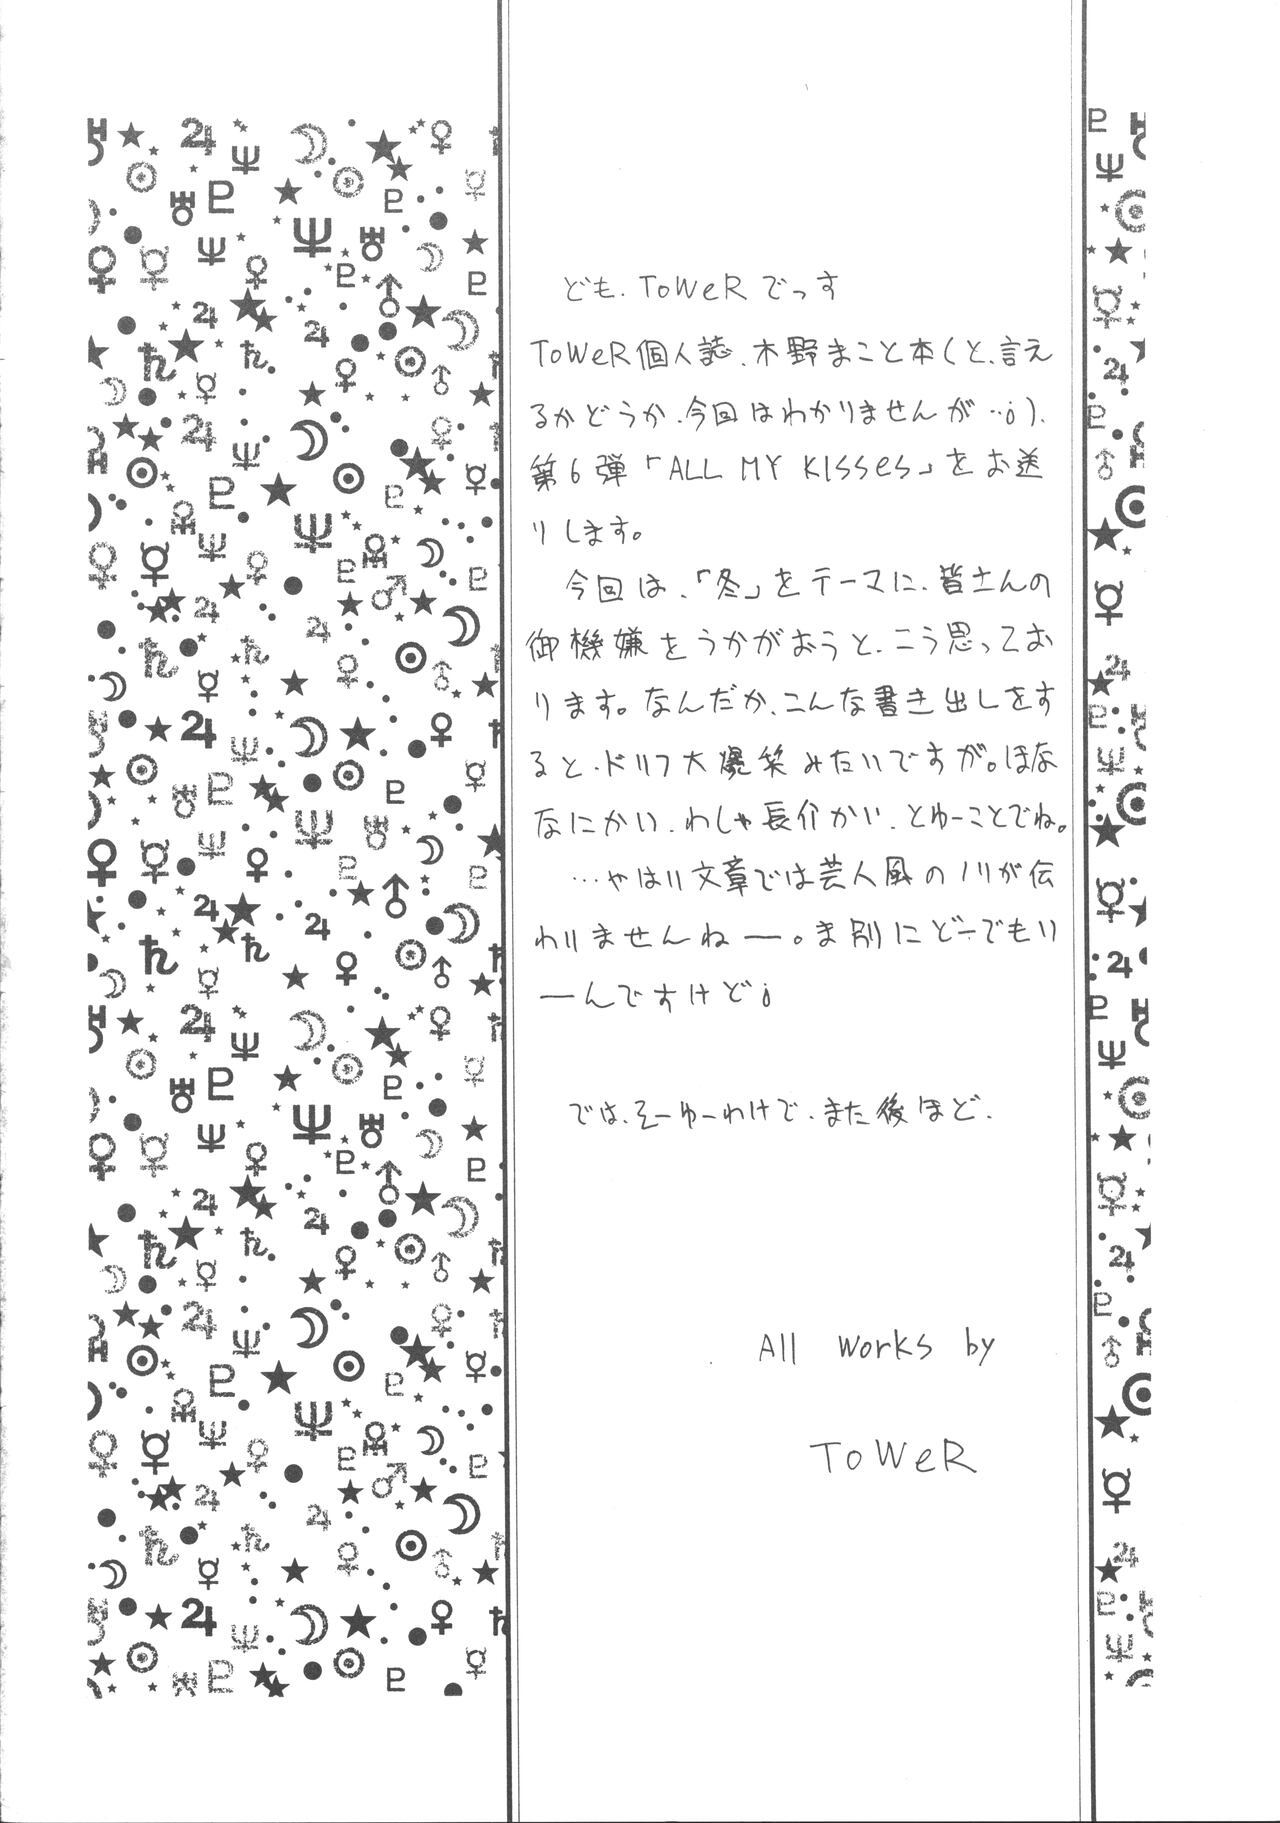 ども、ToWeRでっす
ToWeR個人誌、木野まこと本(と、言え
るかどうか、今回はわかりませんが…;)、
第6弾「ALL MY KISSeS」をお送
りします。
今回は、「冬」をテーマに、皆さんの
御機嫌をうかがおうと、こう思ってお
ります。なんだか、こんな書き出しをす
ると、ドリフ大爆笑みたいですが。ほな
なにかい、わしゃ長介かい、とゆーことでね。
…やはり文章では芸人風のノリが伝
わりませんねー。ま別にどーでもい
ーんですけど;
では、そーゆーわけで、また後ほど、
All works by
ToWeR